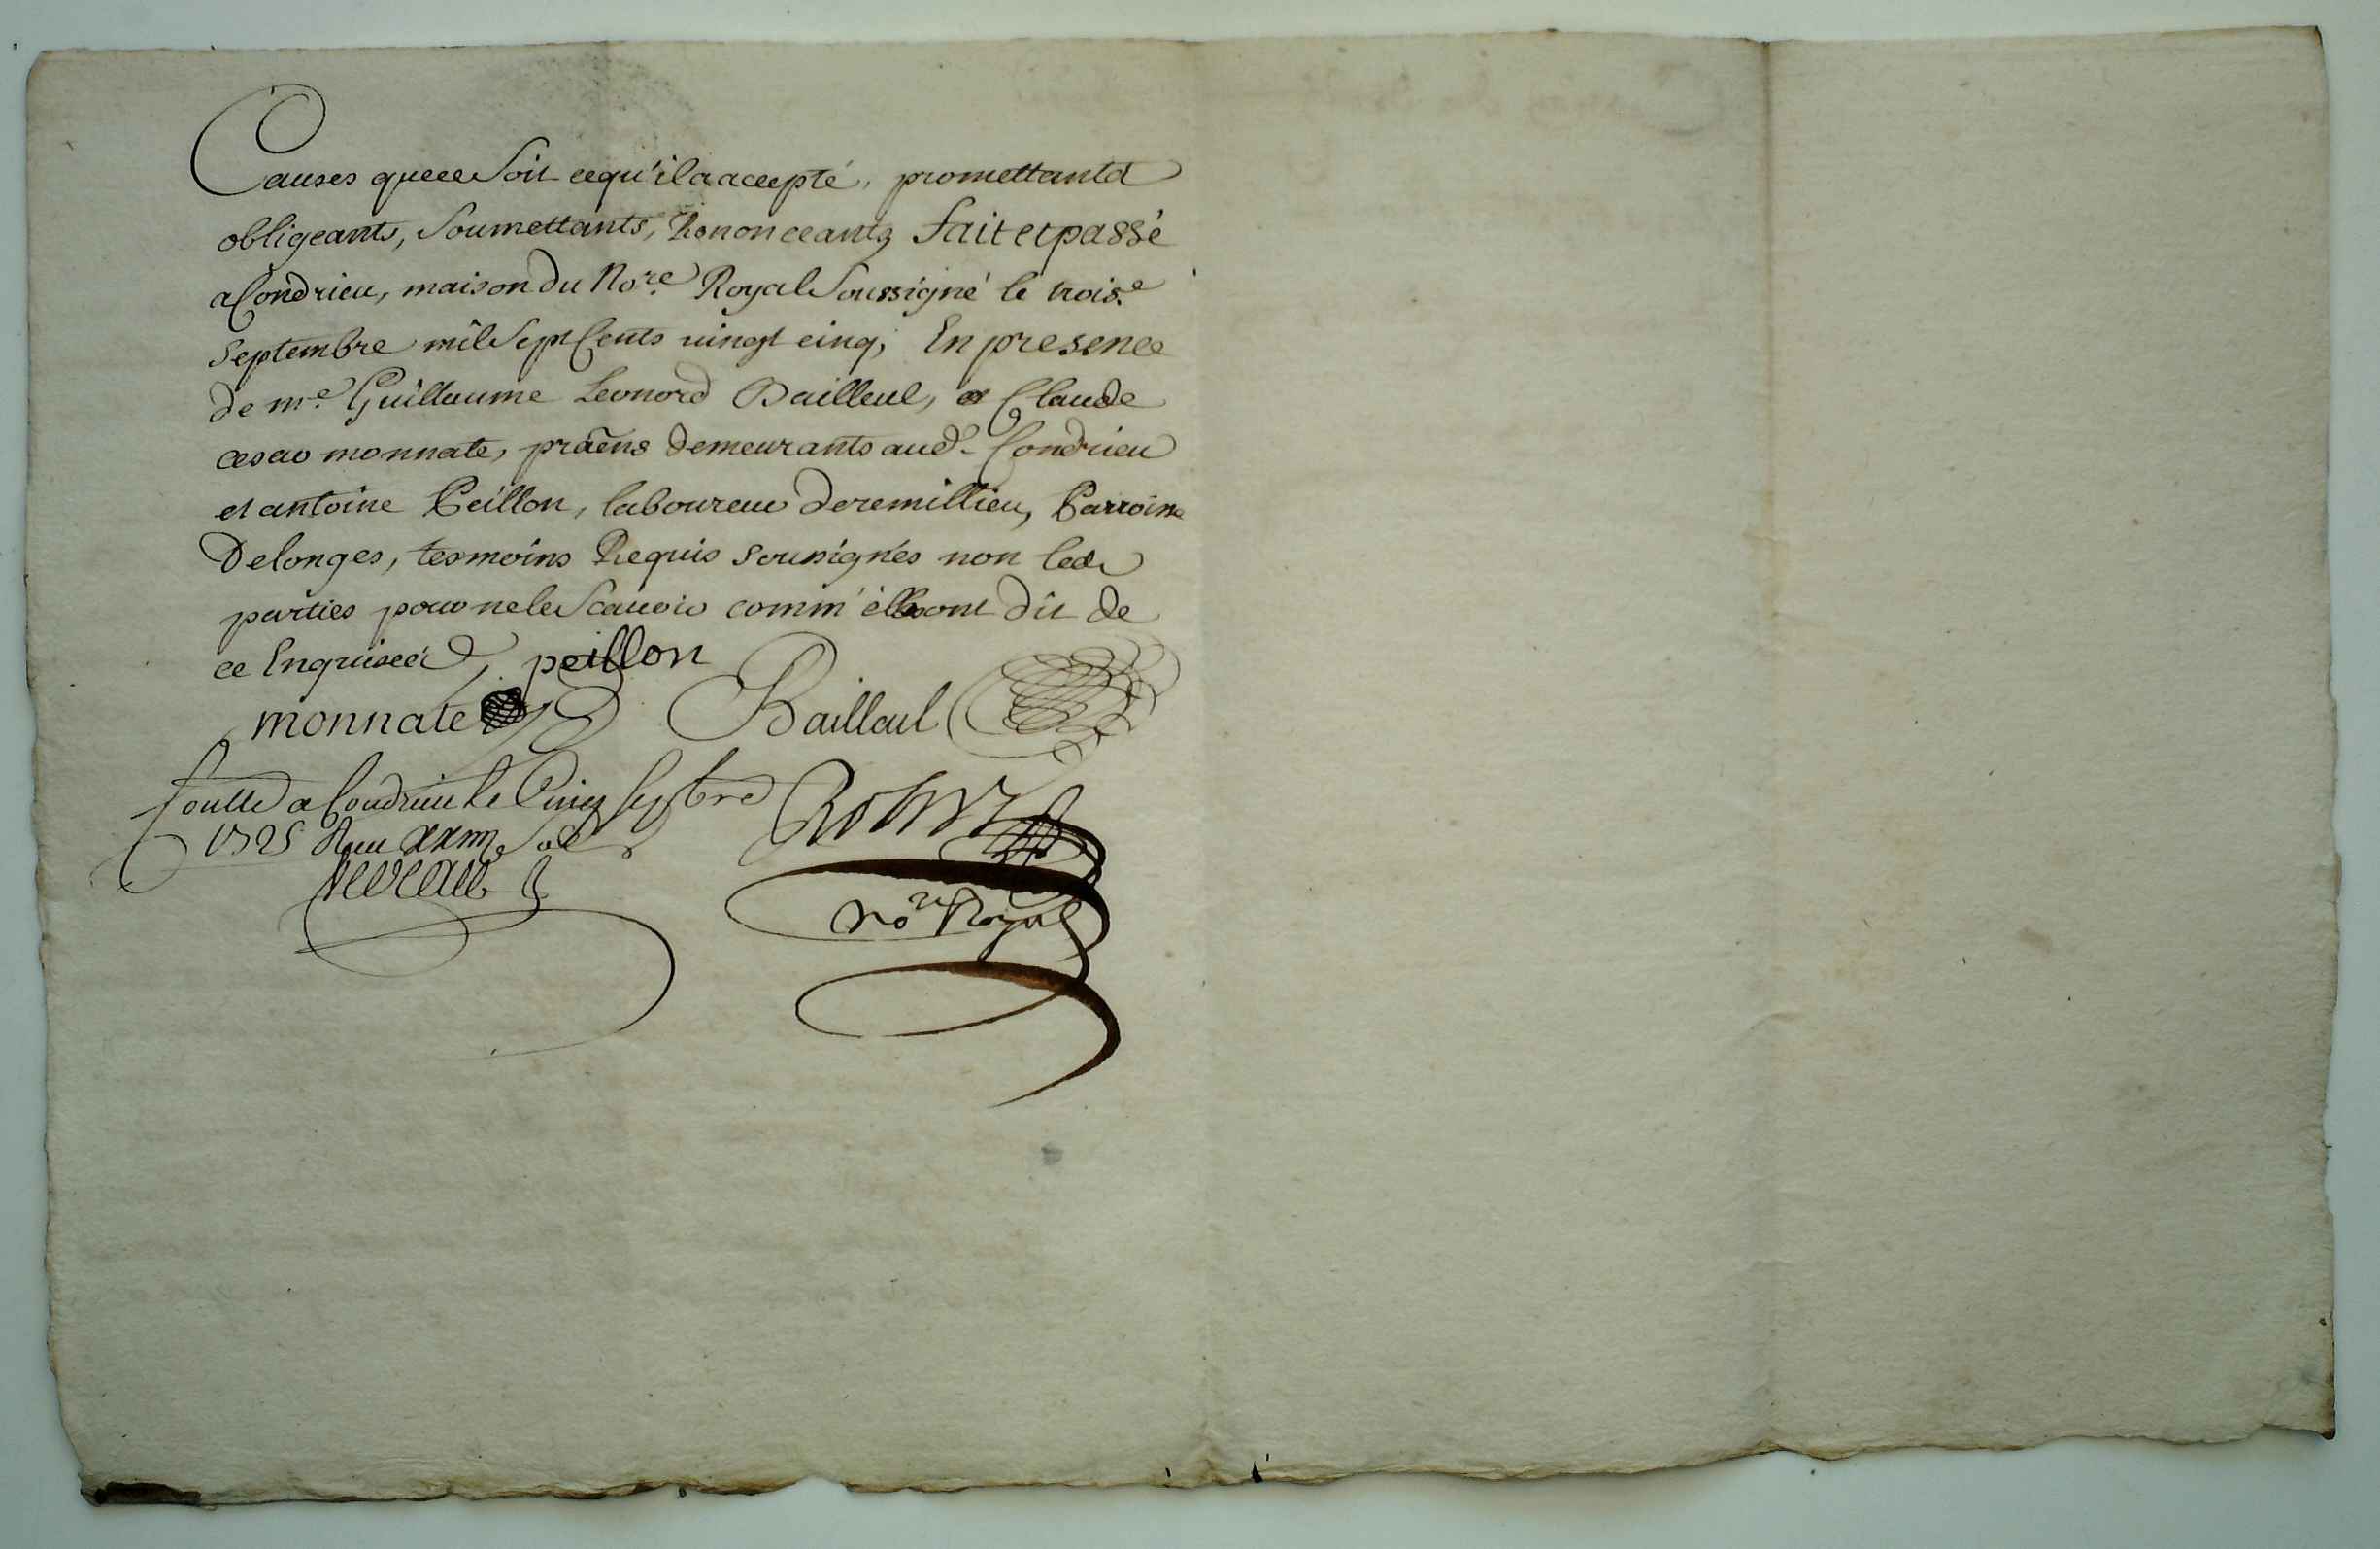 Causes que ce soit ce qu'il a accepté, promettants
obligeants, soumettants, Renonceants fait et passé
a Condrieu, maison du No.re Royal soussigné le trois.e
septembre mil sept Cents vingt cinq, En presence
de m.e Guillaume Leonord Bailleul, & Claude
cesar monnate, pratiens demeurants aud. Condrieu
et antoine Peillon, laboureur de remillieu, Parroisse
de longes, tesmoins Requis soussignés non led.
parties pour ne le scavoir comm' elles ont dit de
ce Enquises, peillon
monnate Bailleul
Coullé a Condrieu le Cinq septbre
1725 Reçu
No.re Royal